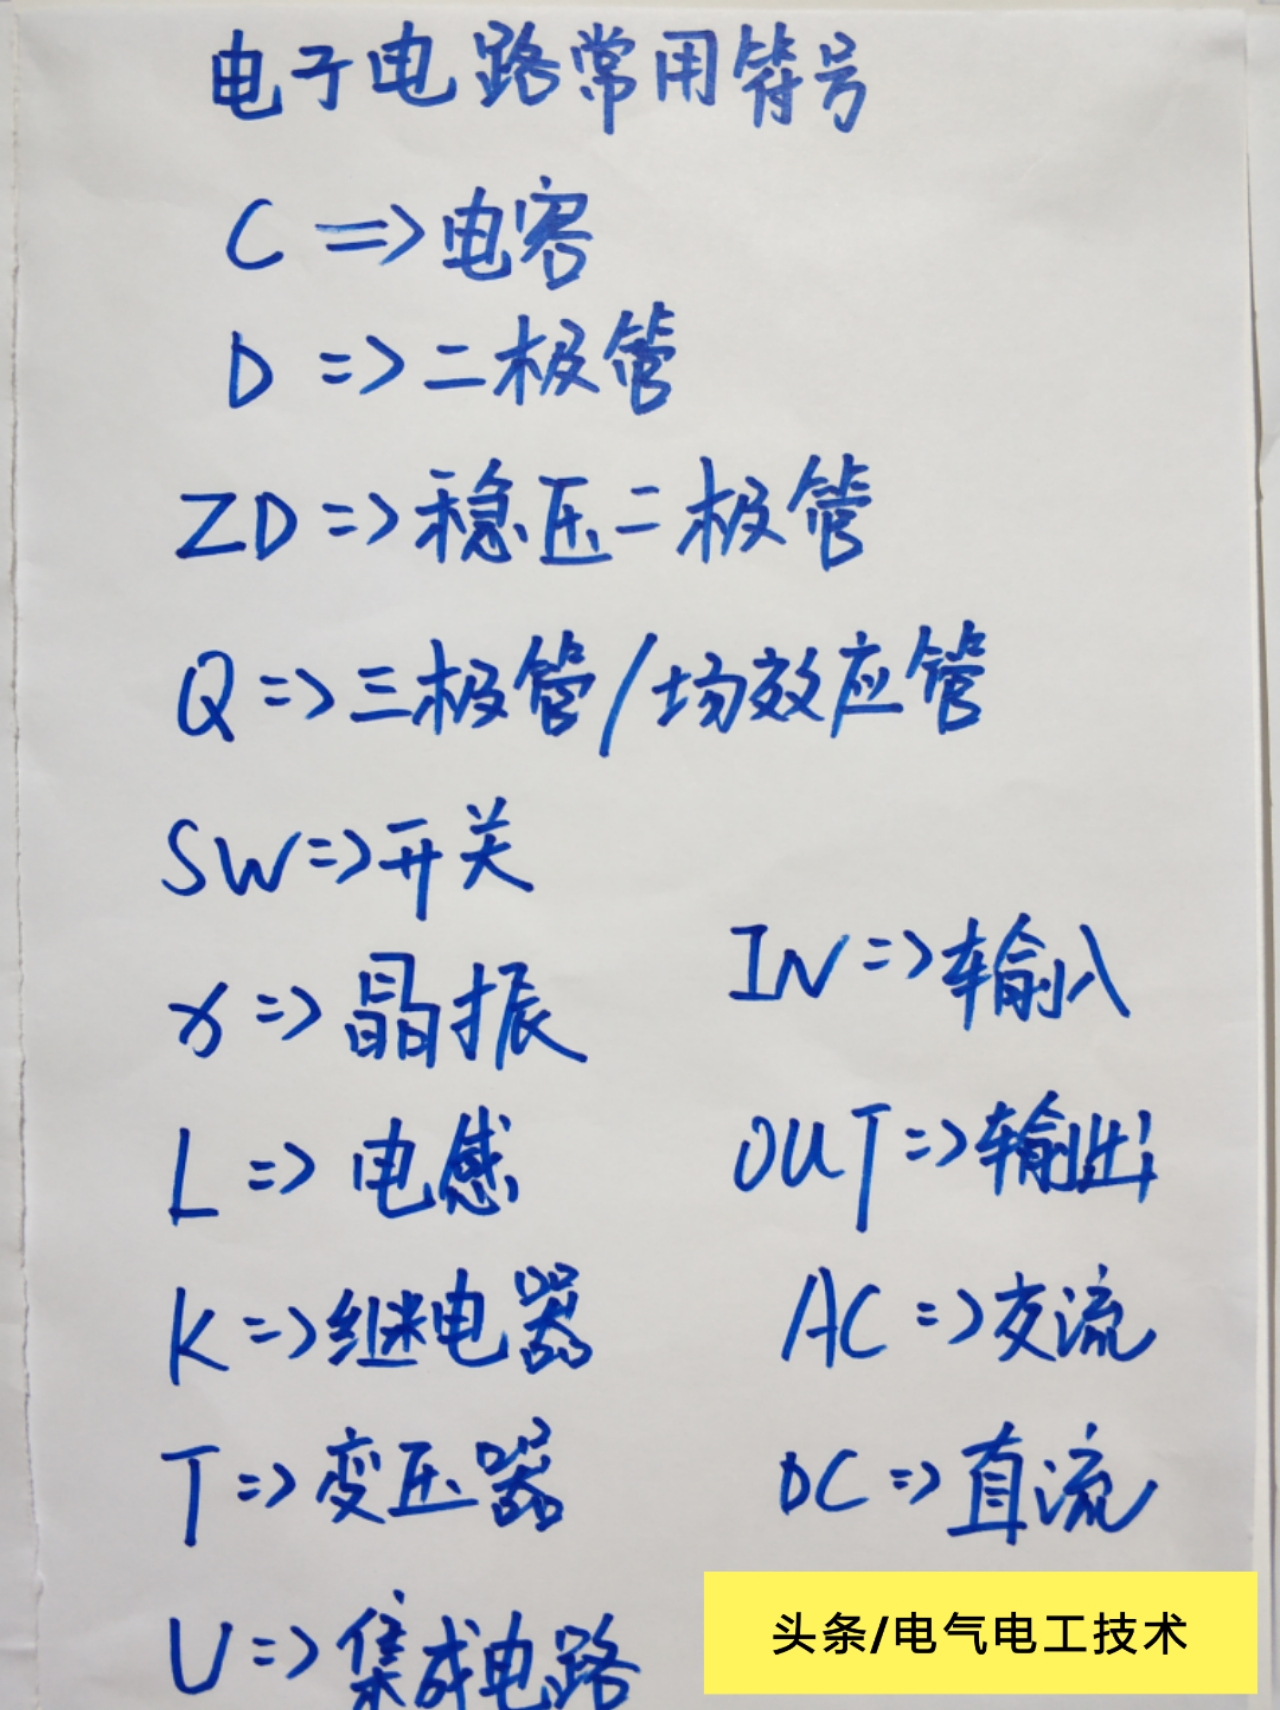 电子电路常用符号
C => 电容
D => 二极管
ZD => 稳压二极管
Q => 三极管/场效应管
SW => 开关
X => 晶振
L => 电感
K => 继电器
T => 变压器
U => 集成电路
IN => 输入
OUT => 输出
AC => 交流
DC => 直流
头条/电气电工技术